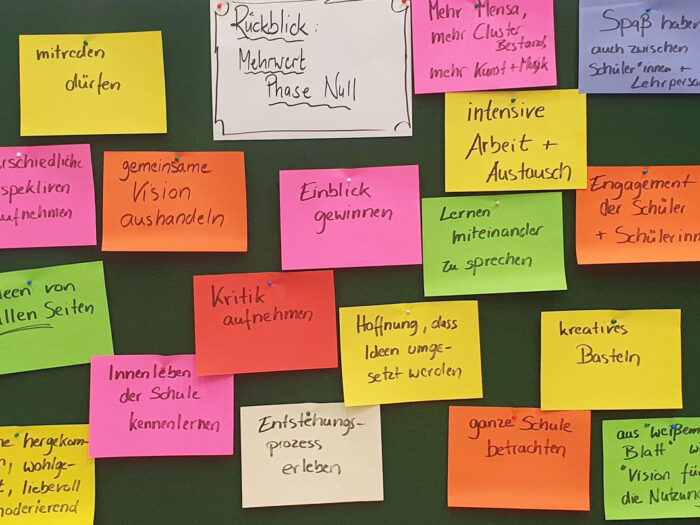 mitreden
dürfen
Rückblick:
Mehrwert
Phase Null
Mehr Mensa,
mehr Cluster
Bestand,
mehr Kunst+Musik
Spaß haben
auch zwischen
Schüler*innen +
Lehrperso
intensive
Arbeit +
Austausch
rschiedliche
spektiven
ufnehmen
gemeinsame
Vision
aushandeln
Einblick
gewinnen
Lernen
miteinander
zu sprechen
Engagement
der Schüler
+ Schülerinn
deen von
allen Seiten
Kritik
aufnehmen
Hoffnung, dass
Ideen umge-
setzt werden
kreatives
Basteln
Innenleben
der Schule
kennenlernen
Entstehungs-
prozess
erleben
ganze Schule
betrachten
aus "weißem
Blatt"
"Vision für
die Nutzung
hergekom-
wohlge-
liebevoll
moderierend